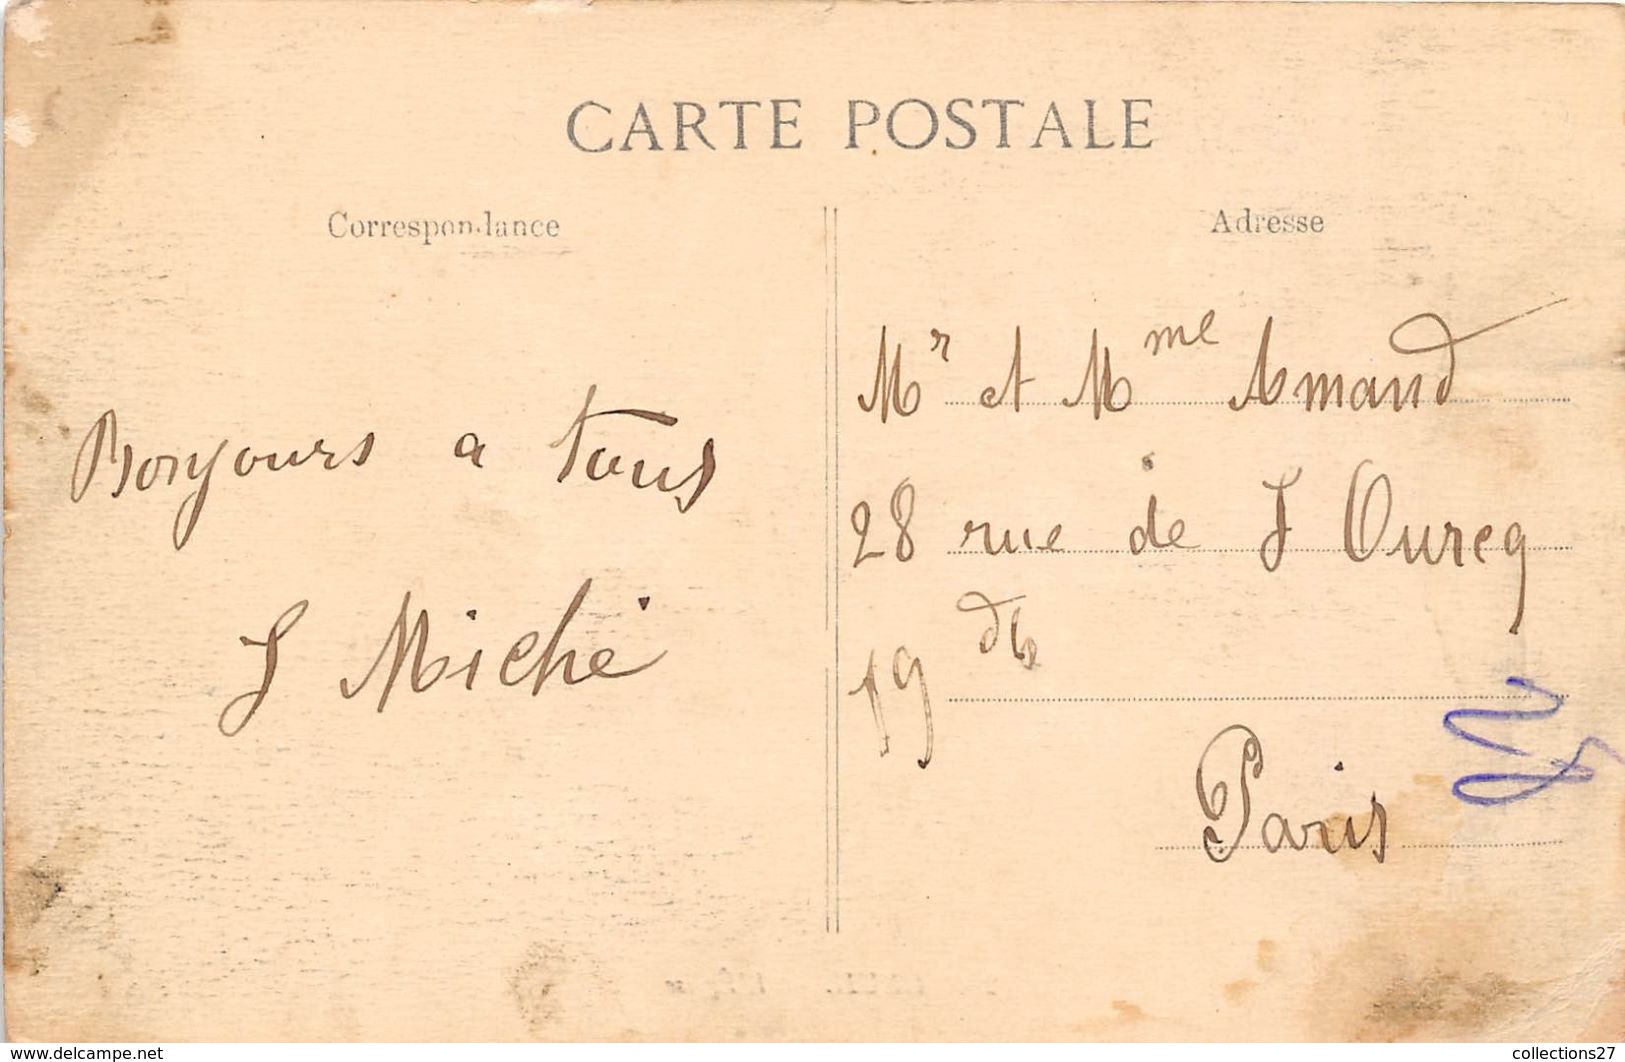 CARTE POSTALE
Correspondance
Adresse
Bonjours a tous
J Miché
Mr et Mme Amand
28 rue de l Ourcq
19
Paris
www.delcampe.net
collections27